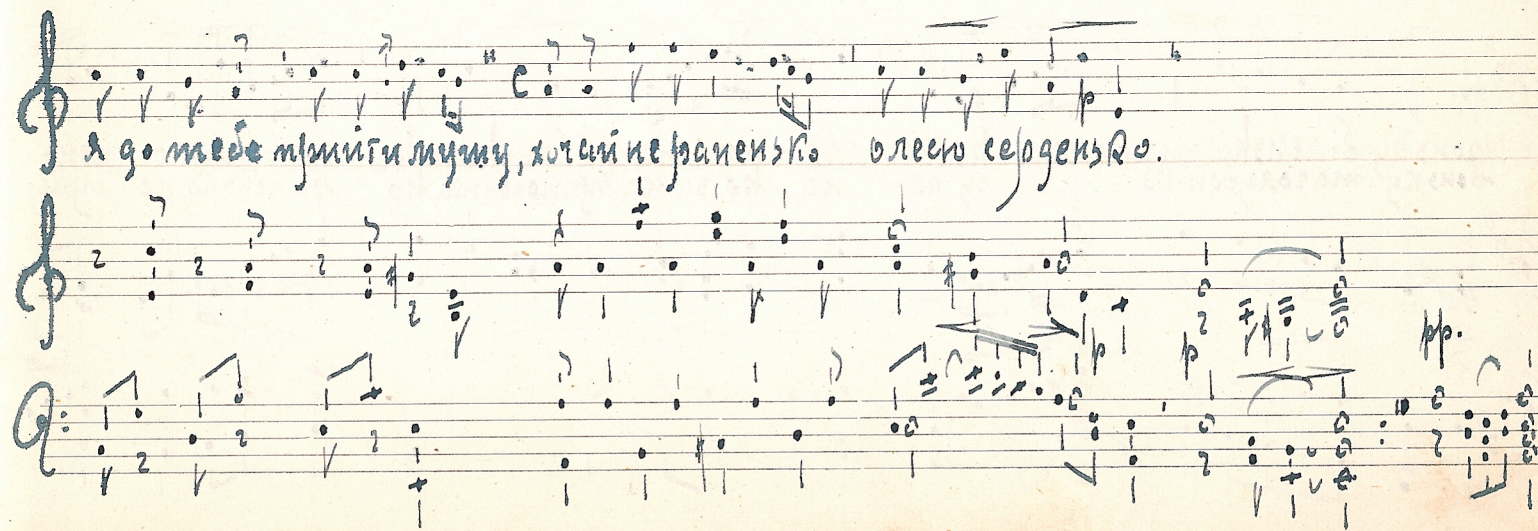 Я до тебе прийти мушу, хочай не раненько Олесю серденько.
p
p p
pp.